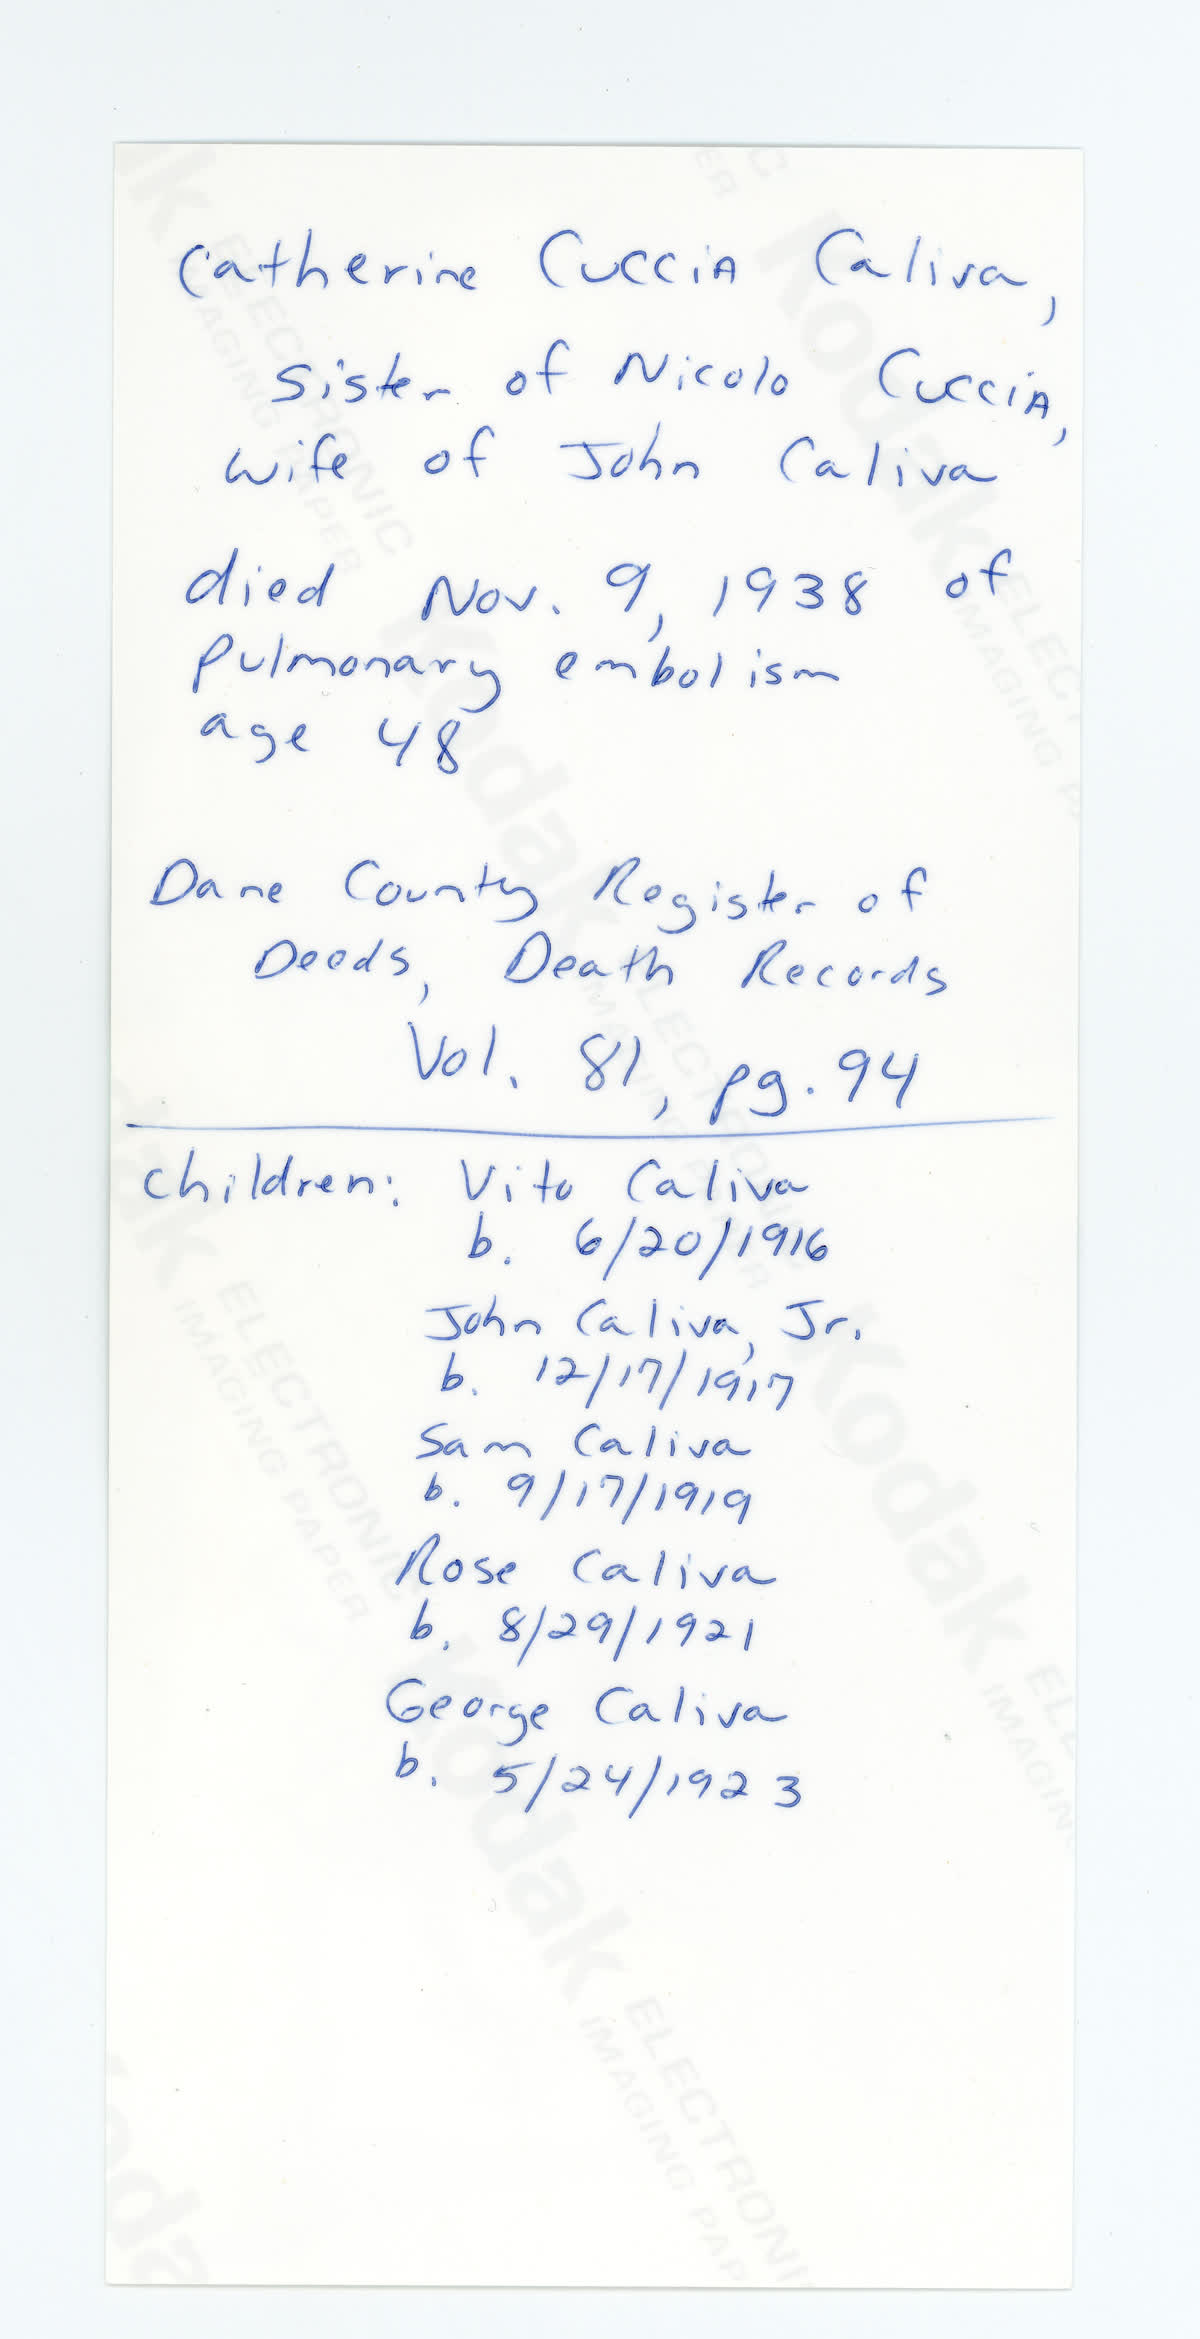 Catherine Cuccia Caliva,
sister of Nicolo Cuccia,
wife of John Caliva
died Nov. 9, 1938 of
pulmonary embolism
age 48
Dane County Register of
Deeds, Death Records
Vol. 81, pg. 94
children: Vito Caliva
b. 6/20/1916
John Caliva, Jr.
b. 12/17/1917
Sam Caliva
b. 9/17/1919
Rose Caliva
b. 8/29/1921
George Caliva
b. 5/24/1923
Kodak
ELECTRONIC
IMAGING PAPER